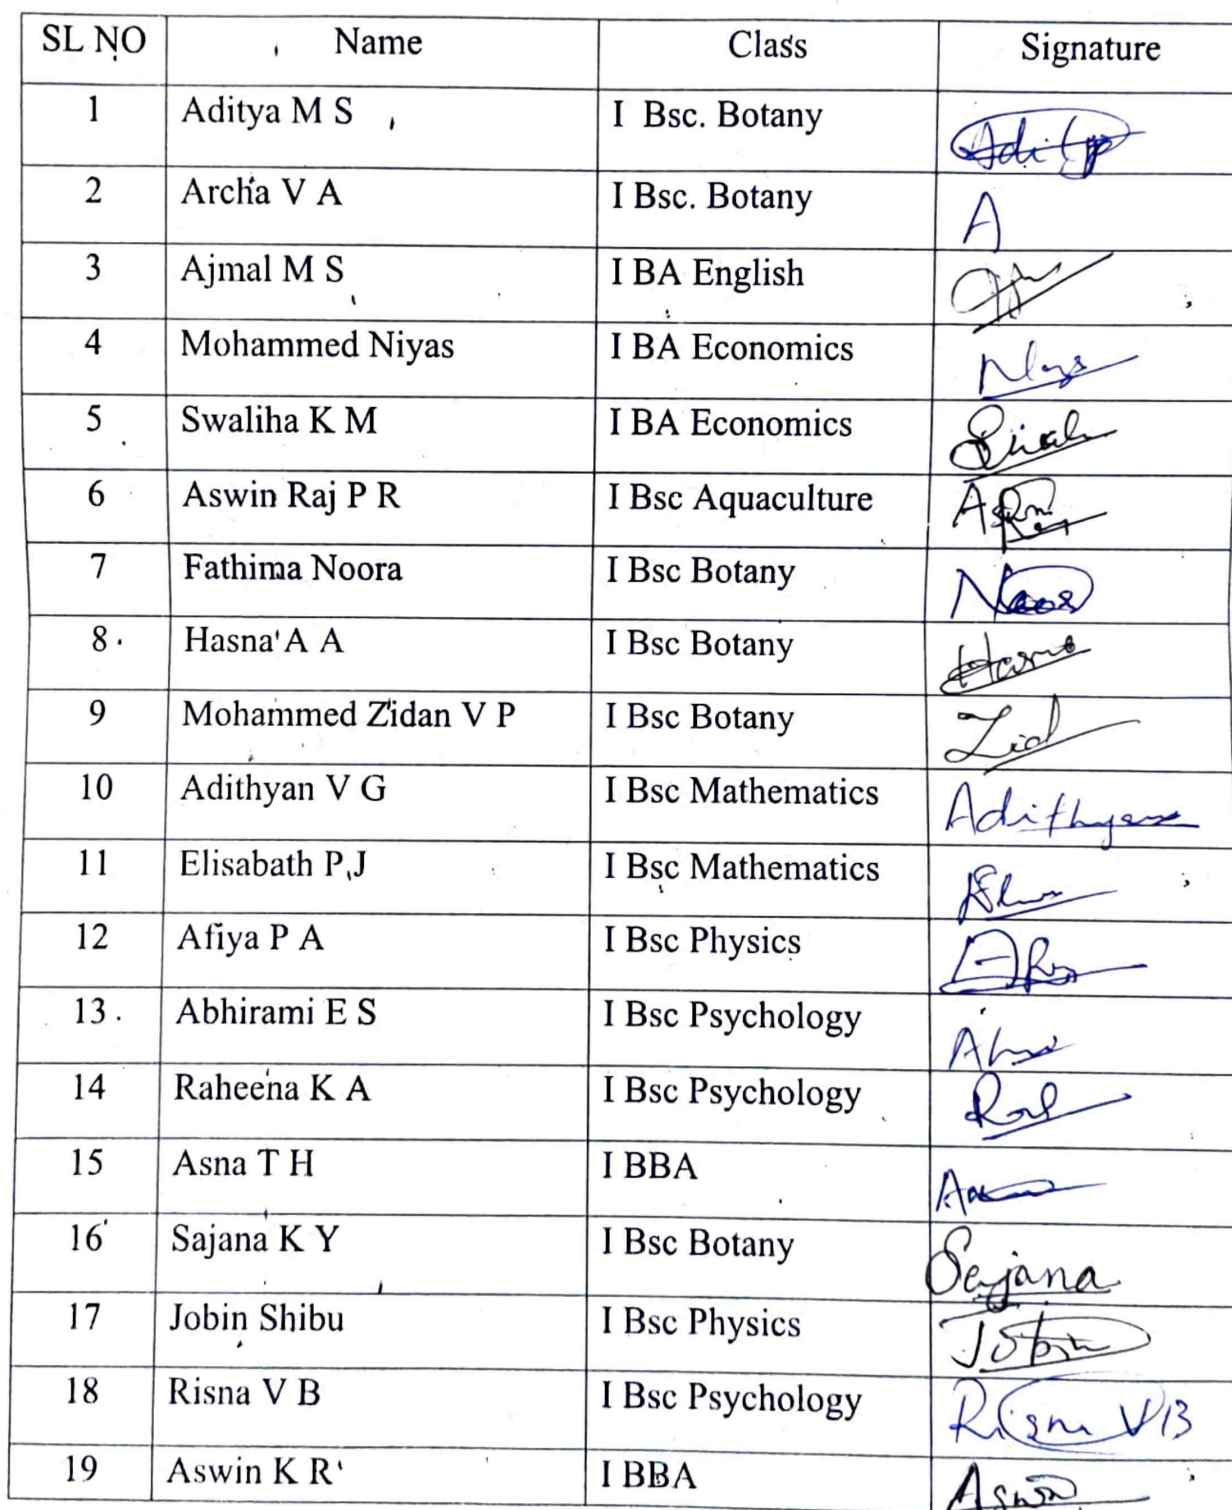 SL NO Name Class Signature
1 Aditya M S I Bsc. Botany Aditya
2 Archa V A I Bsc. Botany A
3 Ajmal M S I BA English
4 Mohammed Niyas I BA Economics
5 Swaliha K M I BA Economics
6 Aswin Raj P R I Bsc Aquaculture
7 Fathima Noora I Bsc Botany
8 Hasna A A I Bsc Botany Hasna
9 Mohammed Zidan V P I Bsc Botany Zid
10 Adithyan V G I Bsc Mathematics Adithyan
11 Elisabath P J I Bsc Mathematics
12 Afiya P A I Bsc Physics
13 Abhirami E S I Bsc Psychology
14 Raheena K A I Bsc Psychology
15 Asna T H I BBA
16 Sajana K Y I Bsc Botany Sajana
17 Jobin Shibu I Bsc Physics Jobin
18 Risna V B I Bsc Psychology Risna V B
19 Aswin K R I BBA Aswin